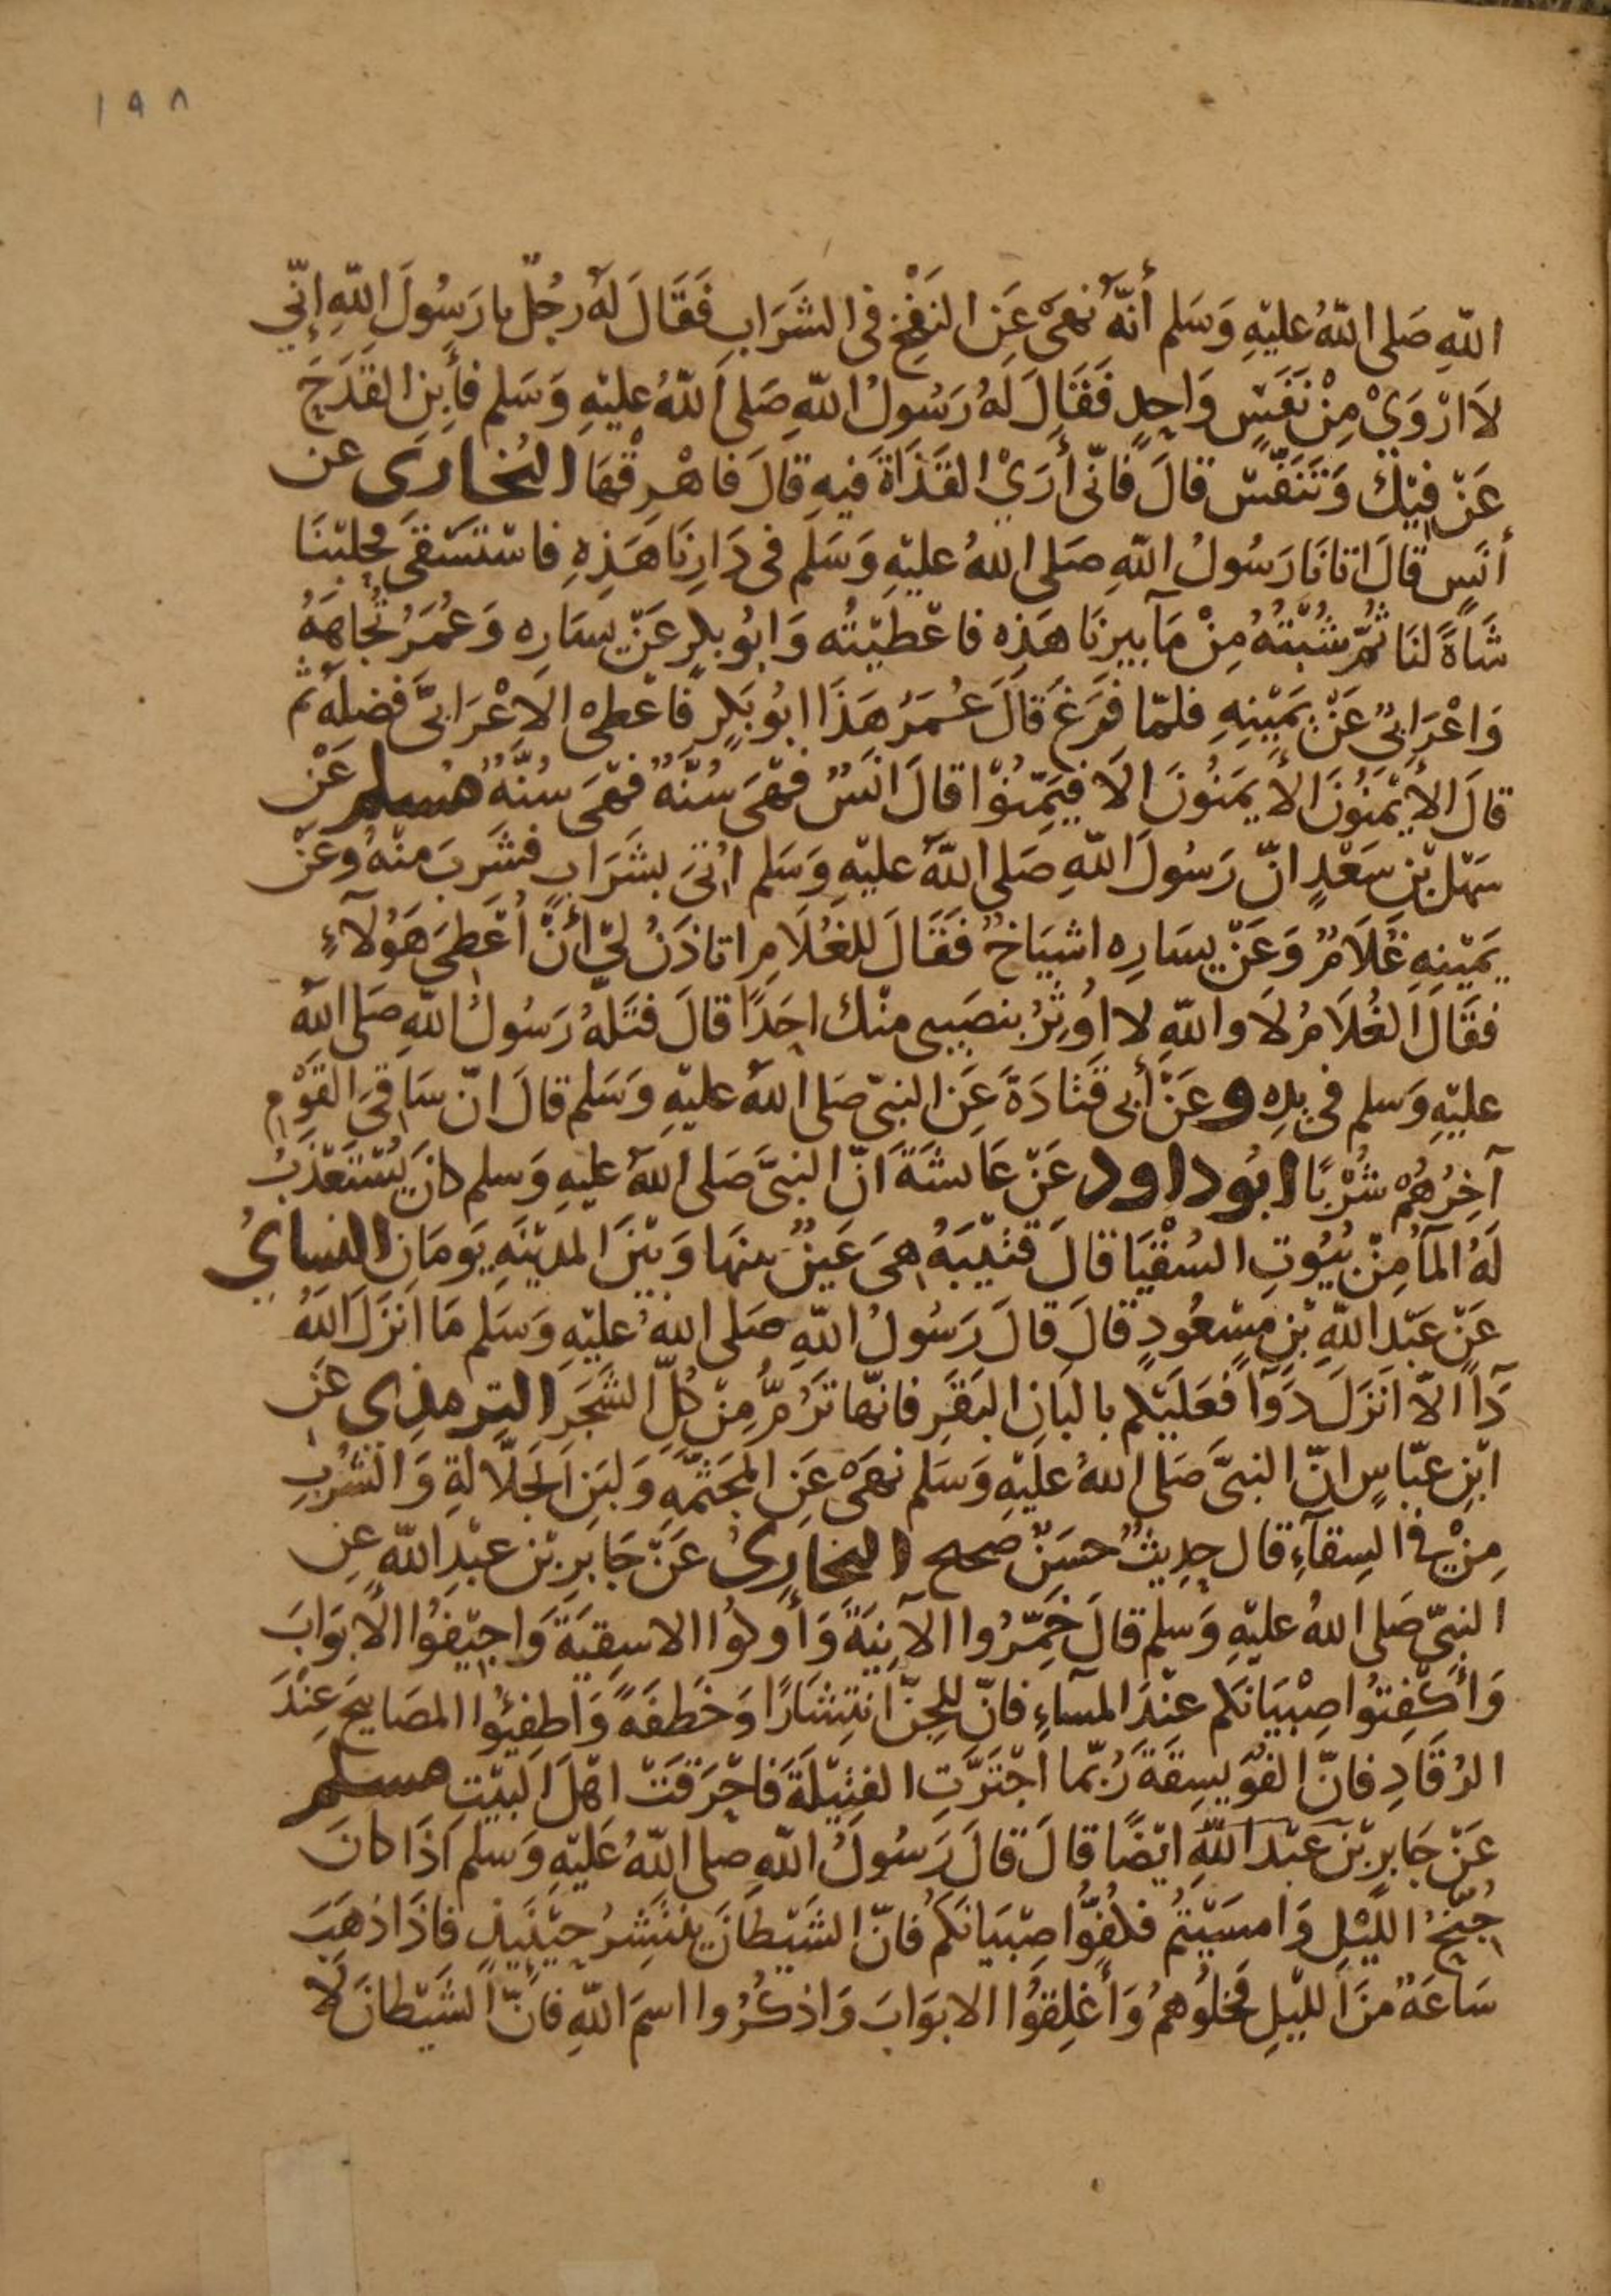 ١٩٨
اللّهِ صَلى اللّهُ عليْهِ وَسَلم أنّهُ نَهَىٰ عَنِ النَفْخِ فى الشَرَابِ فَقَالَ لهُ رجُلٌ يا رَسُولَ اللّهِ إنّي
لَا ارْوَيْ مِنْ نَفَسٍ وَاحِدٍ فَقَالَ لَهُ رَسُولُ اللّهِ صَلى اللّهُ عليْهِ وَسَلم فأبِنِ القَدَحَ
عَنْ فِيْكَ وَتَنَفّسْ قالَ فَانّى أرَيْ القَذَاةَ فيهِ قالَ فَاهْرِقْهَا البُخارَى عن
أنَسٍ قالَ اتانَا رَسُولُ اللّهِ صَلى اللهُ عليْهِ وَسَلَم فى دَارِنَا هَذِهِ فاسْتَسْقَى فحلبْنَا
شَاةً لنَا ثُمّ شُبْتُهُ مِنْ مَآ بيرنَا هَذِه فاعْطيْتُه وَابُو بكرٍ عَنْ يسَارِه وَعُمَرُ تُجاهَهُ
وَاعْرَابىٌّ عَنْ يَمِيْنِهِ فلمّا فَرَغَ قالَ عُمَرُ هَذَا ابُو بَكرٍ فَاعْطى الَاعْرَابىَّ فضلهُ ثم
قالَ الأيْمَنُونَ الأيمَنُونَ الَا فيَمِّنُوْا قالَ انَسٌ فَهْىَ سُنّهٌ فَهْىَ سُنّهٌ مُسلم عَنْ
سَهْلِ بْنِ سَعْدٍ انّ رَسُولَ اللّهِ صَلى اللّهُ عليْهِ وَسَلم اُتىَ بشَرَابٍ فشَرِبَ منْهُ وعَنْ
يَمَيْنِهِ غُلَامٌ وَعَنْ يسَارِه اشيَاخٌ فَقَالَ للغُلَامِ اتاذَنُ ليْ أنْ اُعْطِىَ هَؤُلآءِ
فقَالَ الغُلَامُ لَا واللّهِ لا اُوثِرُ بنصَيبى منْك احَدًا قالَ فتَلهُ رَسُولُ اللّهِ صَلى اللّهُ
عليْهِ وَسلم فى يدِه و عَنْ أبى قَتَادَةَ عَنِ النبىّ صَلى اللهُ عليْهِ وَسَلم قالَ انّ سَاقِىَ القَوْمِ
آخِرُهُمْ شُرْبًا ابُو داود عَنْ عَائشَةَ انّ النبىَّ صَلى اللهُ عليهِ وَسلم كانَ يُسْتَعْذَبُ
لَهُ المآءُ مِنْ بُيُوتِ السُقْيَا قالَ قتَيْبَهُ هىَ عَينٌ بينهَا وَبيْنَ المديْنَهِ يَومَانِ النسايُ
عَنْ عَبْدِ اللّهِ بْنِ مسْعُودٍ قالَ قالَ رَسُولُ اللّهِ صَلى اللهُ عليْهِ وَسَلم مَا انَزَلَ اللهُ
دَآءً الّا انَزَلَ دَوَآءً فعَلَيْكم بالبَانِ البَقَرِ فانّها تَرُمُّ مِنْ كُلِّ الشَجَرِ الترمذى عَن
ابْنِ عبّاسٍ انّ النبىَّ صَلى اللهُ عليْهِ وَسَلم نهَىْ عَنِ المجَثّمَهِ وَلبَنِ الجَلّالَةِ وَالشُرْبِ
مِنْ فى السِقآءِ قال حدِيثٌ حسَنٌ صحيح البخارِىُ عَنْ جَابرِ بْن عبْدِ اللّهِ عن
النبىّ صَلى اللهُ عليْهِ وَسلم قالَ خَمِّرُوا الآنِيَةَ وَأوكوُا الاسِقيَةَ وَاجيْفوُا الأبوَابَ
وَأكْفِتوُا صِبْيَانَكم عنْدَ المسآءِ فانّ للجِنّ انتِشَارًا وَخَطفَهً وَاطفِئوُا المصَابيحَ عِنْدَ
الرُقَادِ فانّ الفوَيسِقَةَ رُبّما اجْتَرّتِ الفتِيْلَةَ فَاحْرَقَتْ اهْلَ البيْتِ مسلم
عَنْ جَابرِ بْن عَبْد اللّهِ ايْضًا قالَ قالَ رَسُولُ اللّهِ صلى اللّهُ عَليْهِ وَسلم اذَا كانَ
جُنْحُ الليْلِ وَامسَيْتُم فكُفُّوا صِبْيَانَكمُ فانّ الشَيْطانَ يَنْتَشِرُ حيْنَيِذٍ فاذَا ذهَبَ
سَاعَهٌ منَ الليْلِ فخلوُهمُ وَأغلِقوُا الابوَابَ وَاذكُرُوا اسمَ اللّهِ فانّ الشيْطانَ لَا